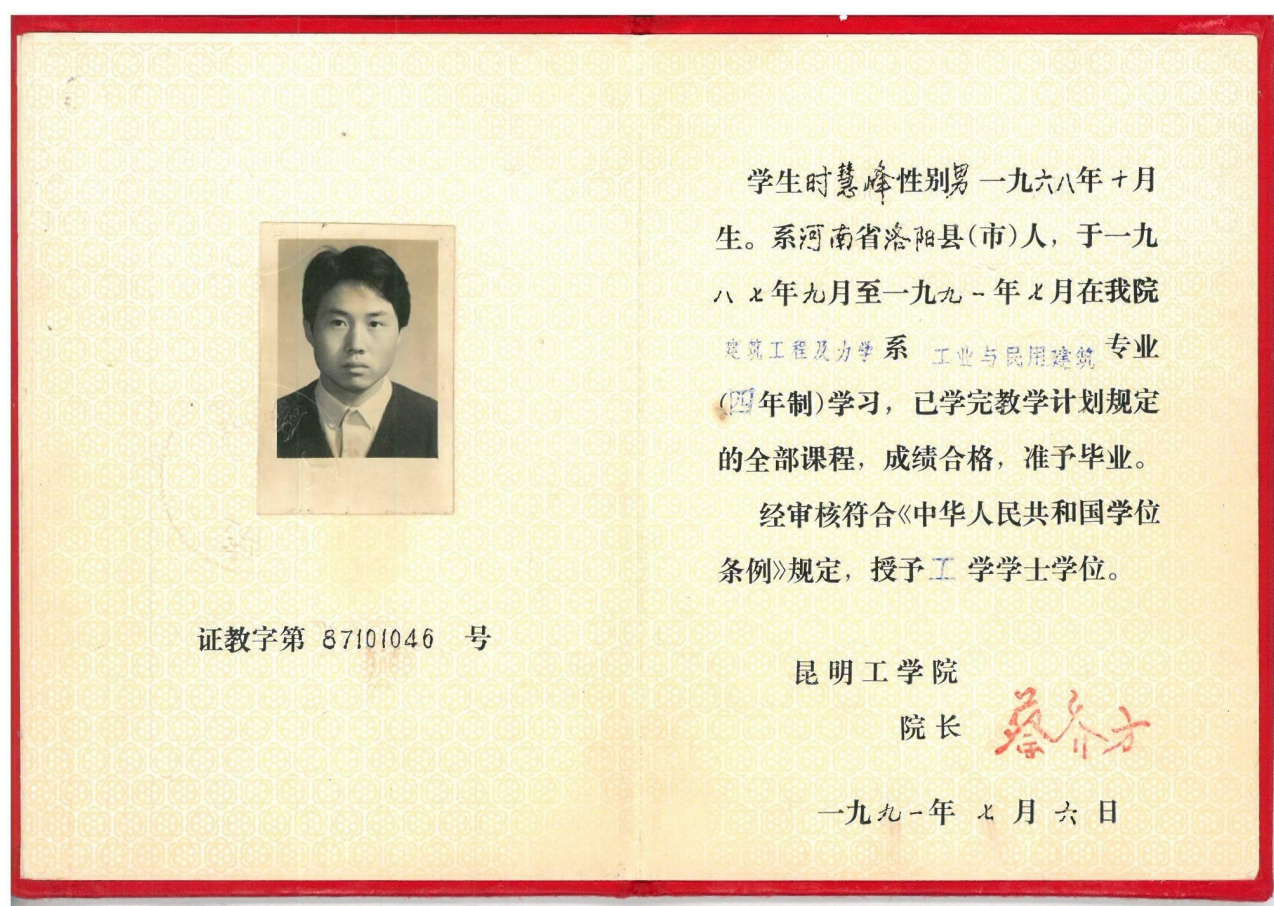 证教字第 87101046 号
学生时慧峰性别男一九六八年十月
生。系河南省洛阳县(市)人，于一九
八七年九月至一九九一年七月在我院
建筑工程及力学系 工业与民用建筑专业
(四年制)学习，已学完教学计划规定
的全部课程，成绩合格，准予毕业。
经审核符合《中华人民共和国学位
条例》规定，授予工学学士学位。
昆明工学院
院长 蔡乔方
一九九一年七月六日